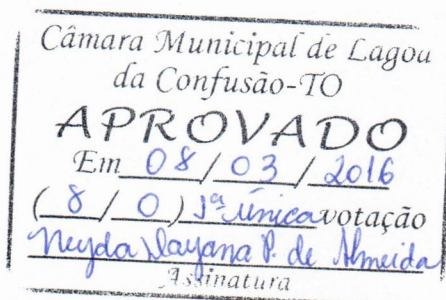 Câmara Municipal de Lagoa
da Confusão-TO
APROVADO
Em 08/03/2016
(8/0) 1ª única votação
Neyda Dayana P. de Almeida
Assinatura